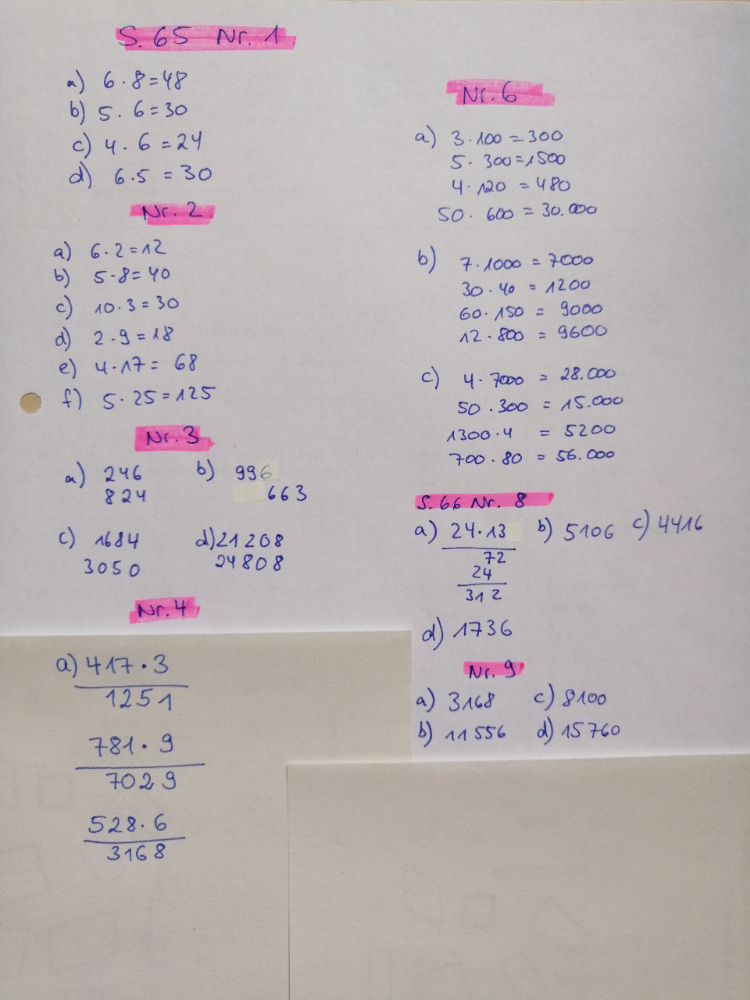 S. 65 Nr. 1
a) 6 · 8 = 48
b) 5 · 6 = 30
c) 4 · 6 = 24
d) 6 · 5 = 30
Nr. 2
a) 6 · 2 = 12
b) 5 · 8 = 40
c) 10 · 3 = 30
d) 2 · 9 = 18
e) 4 · 17 = 68
f) 5 · 25 = 125
Nr. 3
a) 246 b) 996
824 663
c) 1684 d) 21208
3050 24808
Nr. 4
a) 417 · 3
1251
781 · 9
7029
528 · 6
3168
Nr. 6
a) 3 · 100 = 300
5 · 300 = 1500
4 · 120 = 480
50 · 600 = 30.000
b) 7 · 1000 = 7000
30 · 40 = 1200
60 · 150 = 9000
12 · 800 = 9600
c) 4 · 7000 = 28.000
50 · 300 = 15.000
1300 · 4 = 5200
700 · 80 = 56.000
S. 66 Nr. 8
a) 24 · 13 b) 5106 c) 4416
72
24
312
d) 1736
Nr. 9
a) 3168 c) 8100
b) 11556 d) 15760